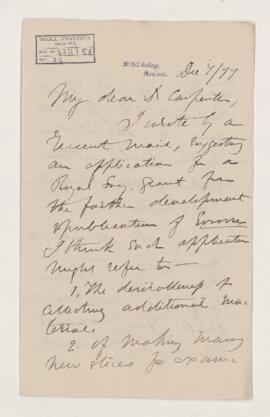 McGILL UNIVERSITY
ARCHIVES
ACC. NO.
REF.
McGill College,
Montreal.
Dec 7/77
My dear Dr Carpenter,
I wrote by a
recent mail, suggesting
an application for a
Royal Soc. grant for
the further development
& publication of Eozoon
I think such application
might refer to —
1. The desirableness of
collecting additional ma-
terial.
2. of making many
new slices for exami-